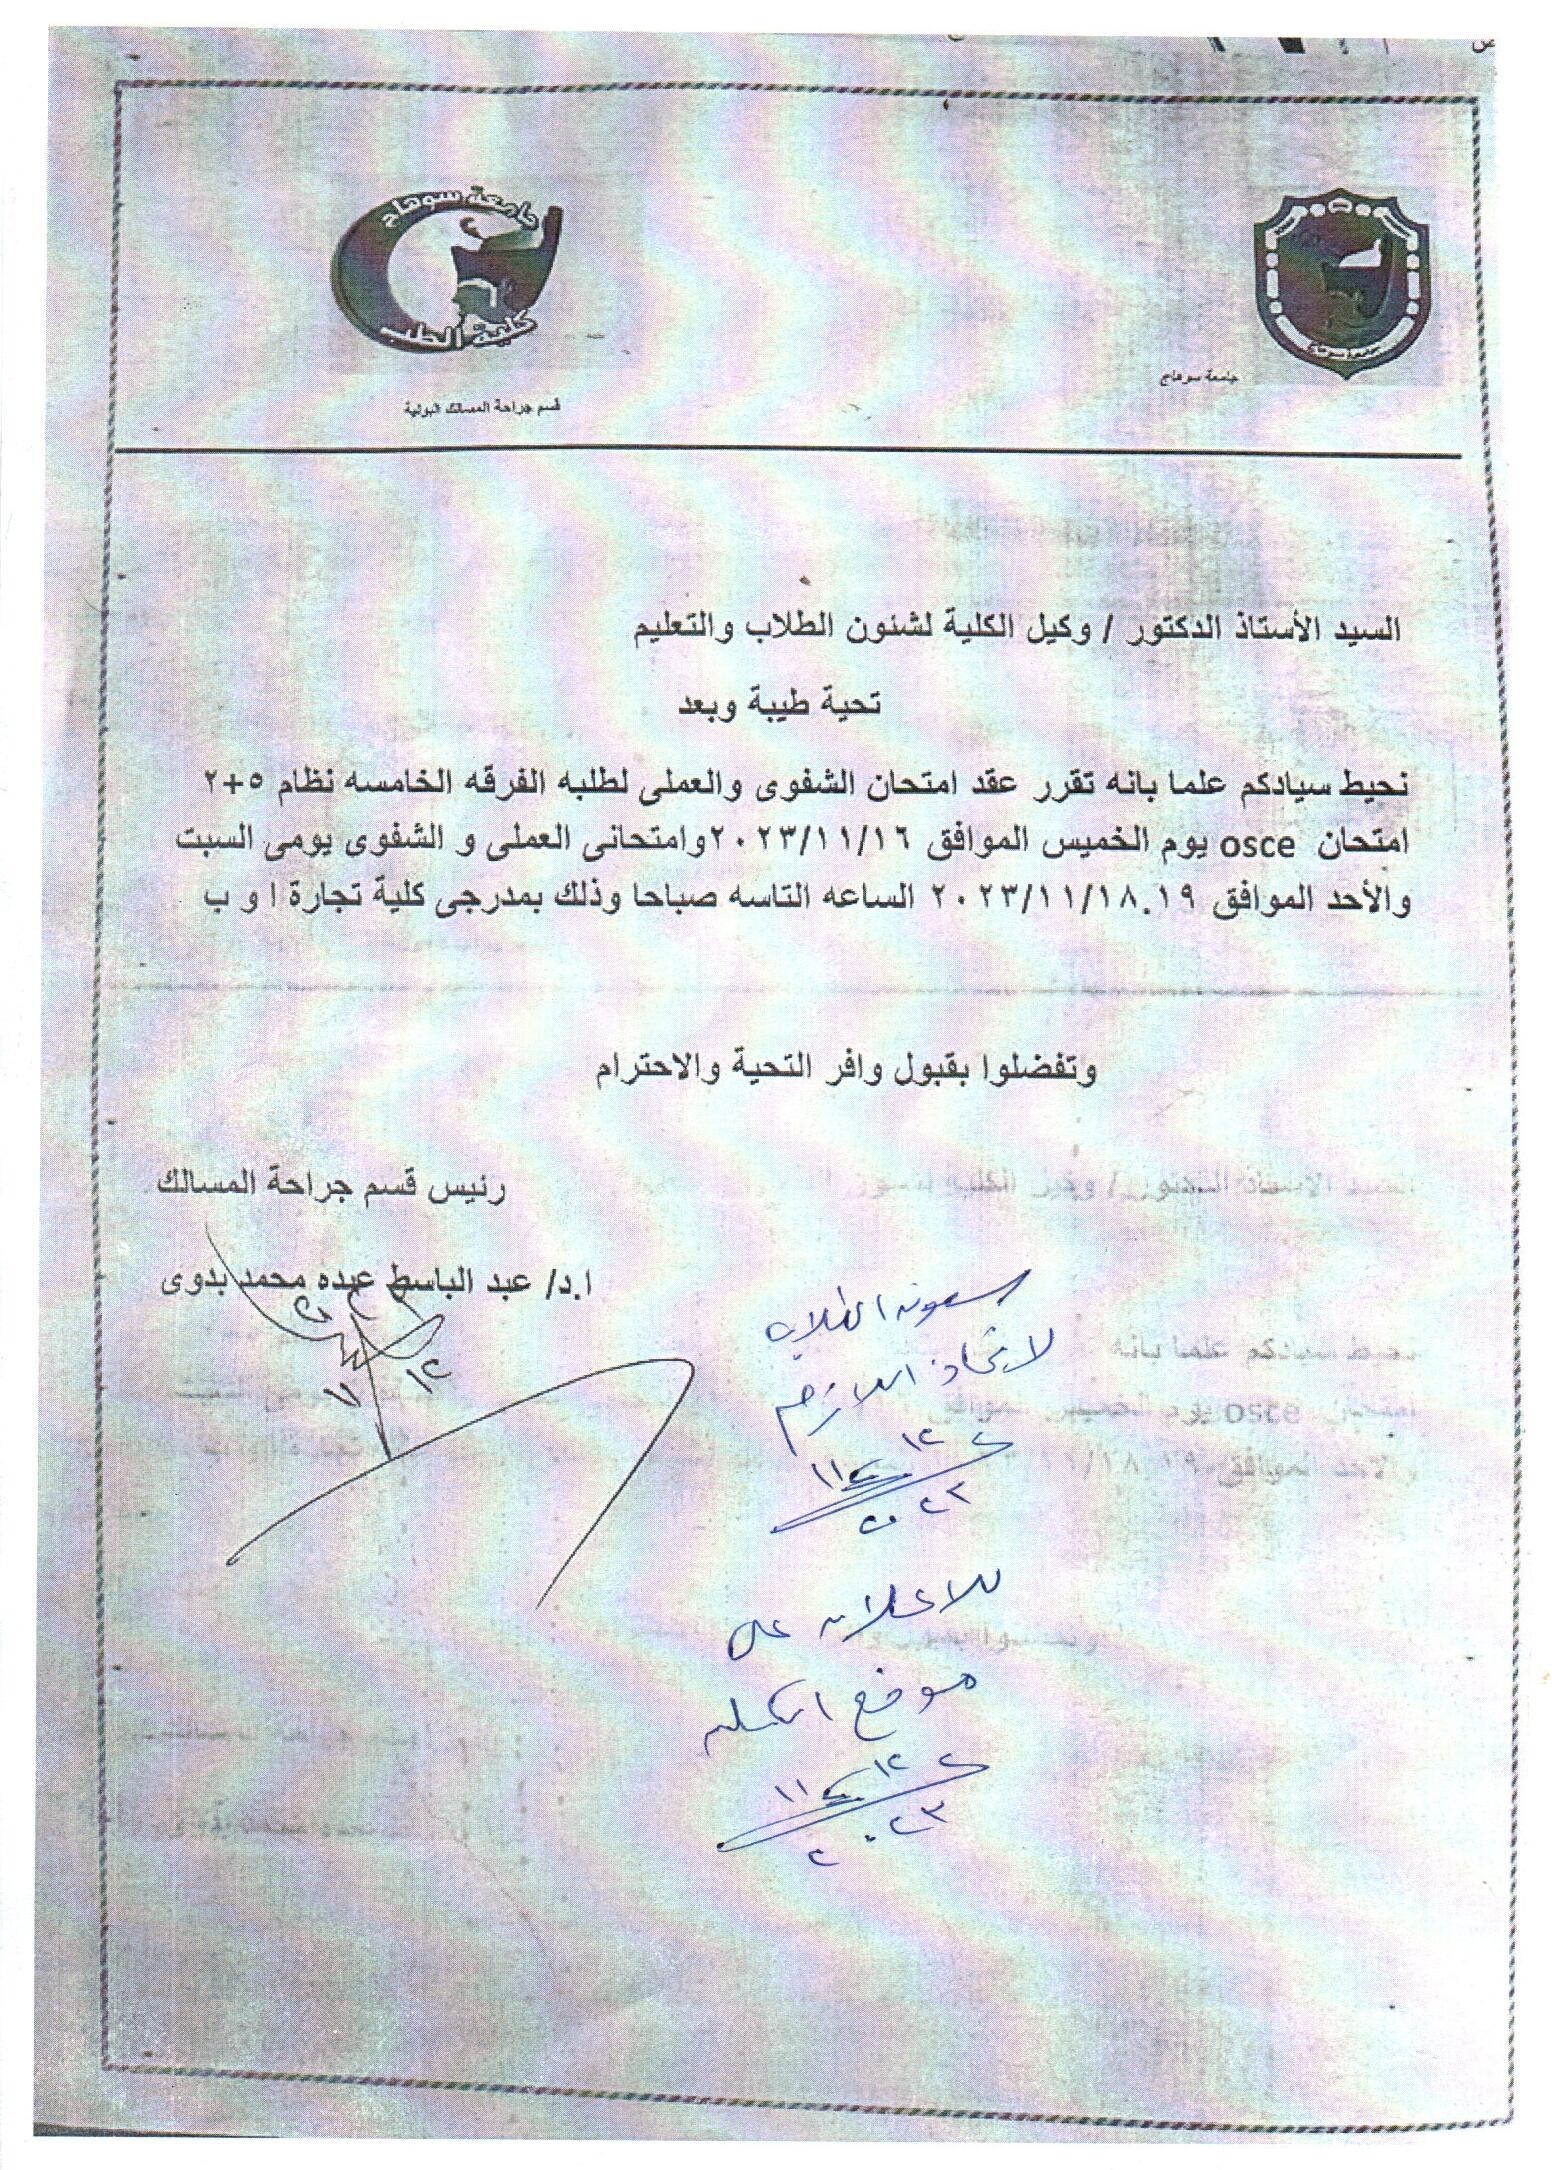 جامعة سوهاج
كلية الطب
جامعة سوهاج
جامعة سوهاج
قسم جراحة المسالك البولية
السيد الأستاذ الدكتور / وكيل الكلية لشئون الطلاب والتعليم
تحية طيبة وبعد
نحيط سيادكم علما بانه تقرر عقد امتحان الشفوى والعملى لطلبه الفرقه الخامسه نظام ٥+٢
امتحان osce يوم الخميس الموافق ٢٠٢٣/١١/١٦وامتحانى العملى و الشفوى يومى السبت
والأحد الموافق ٢٠٢٣/١١/١٨.١٩ الساعه التاسه صباحا وذلك بمدرجى كلية تجارة ا و ب
وتفضلوا بقبول وافر التحية والاحترام
رئيس قسم جراحة المسالك
ا.د/ عبد الباسط عبده محمد بدوى
الطلاب
لاتخاذ اللازم
١١ ١٢
٢٠٢٣
للاعلان على
موقع الكليه
١١ ١٢
٢٠٢٣